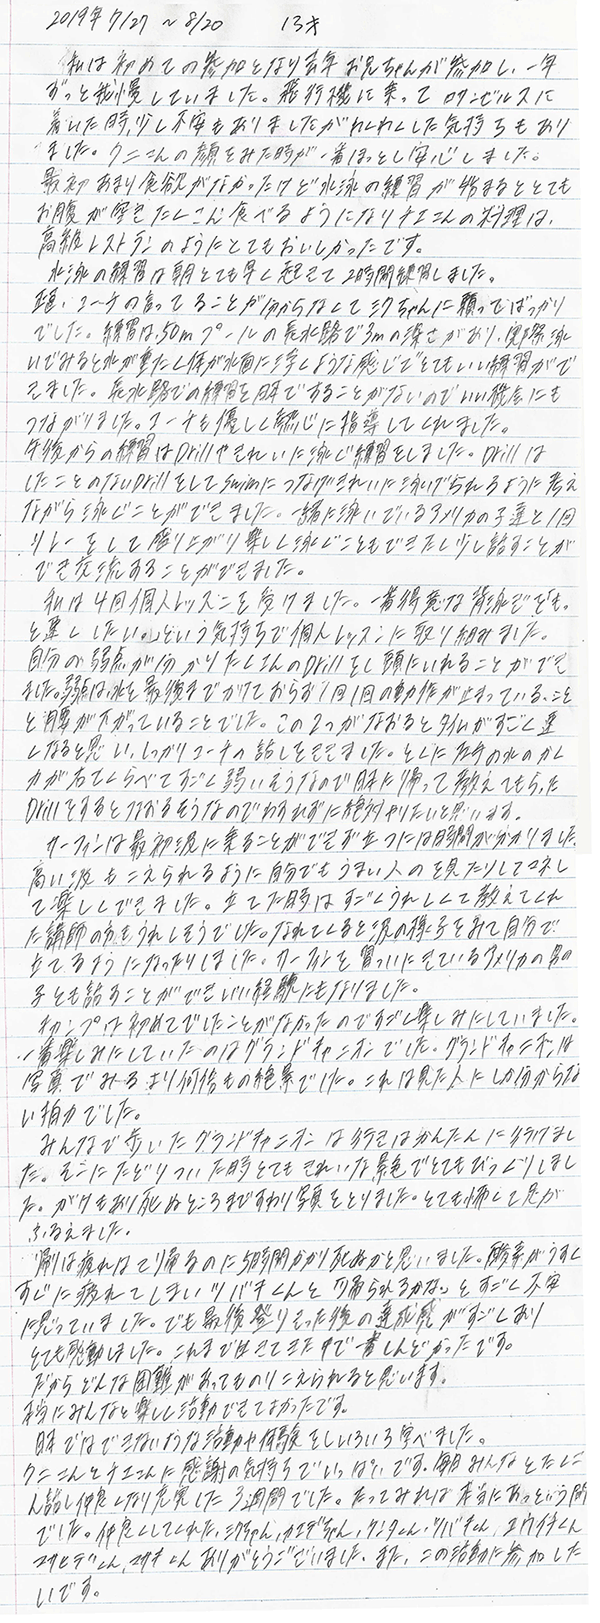 2019年 7/27 ～ 8/20 13才
私は初めての参加となり去年お兄ちゃんが参加し、一年
ずっと我慢していました。飛行機に乗ってロサンゼルスに
着いた時、少し不安もありましたがわくわくした気持ちもあり
ました。クニさんの顔をみた時が一番ほっとし安心しました。
最初あまり食欲がなかったけど水泳の練習が始まるととても
お腹が空きたくさん食べるようになりチエさんの料理は、
高級レストランのようにとてもおいしかったです。
水泳の練習は朝とても早く起きて2時間練習しました。
正直、コーチの言ってることが分からなくてミクちゃんに頼ってばっかり
でした。練習は、50mプールの長水路で3mの深さがあり、実際泳
いでみると水が重たく体が水面に浮くような感じでとてもいい練習がで
きました。長水路での練習を日本ですることがないのでいい機会にも
つながりました。コーチも優しく熱心に指導してくれました。
午後からの練習はDrillやきれいに泳ぐ練習をしました。Drillは
したことのないDrillをしてswimにつなげきれいに泳げられるように考え
ながら泳ぐことができました。一緒に泳いでいるアメリカの子達と1回
リレーをして盛り上がり楽しく泳ぐこともできたし少し話すことが
でき交流することができました。
私は4回個人レッスンを受けました。一番得意な背泳ぎでもっ
と速くしたい。という気持ちで個人レッスンに取り組みました。
自分の弱点が分かりたくさんのDrillをし頭にいれることができ
ました。弱点は、水を最後までかけておらず1回1回の動作が止まっている、こと
と腰が下がっていることでした。この2つがなおるとタイムがすごく速
くなると思い、しっかりコーチの話しをききました。とくに左手の水のかく
力が右てくらべてすごく弱いそうなので日本に帰って教えてもらった
Drillをするとなおるそうなのでわすれずに絶対やりたいと思います。
サーフィンは最初波に乗ることができず立つには時間がかかりました。
高い波もこえられるように自分でもうまい人のを見たりしてマネし
て楽しくできました。立てた時はすごくうれしくて教えてくれ
た講師の方もうれしそうでした。なれてくると波の様子をみて自分で
立てるようになったりしました。サーフィンを習いにきているアメリカの男の
子とも話すことができいい経験にもなりました。
キャンプは初めてでしたことがなかったのですごく楽しみにしていました。
一番楽しみにしていたのはグランドキャニオンでした。グランドキャニオンは
写真でみるより何倍もの絶景でした。これは見た人にしか分からな
い迫力でした。
みんなで歩いたグランドキャニオンは行きはかんたんに行けまし
た。そこにたどりついた時とてもきれいな景色でとてもびっくりしまし
た。ガケもあり死ぬところまですわり写真をとりました。とても怖くて足が
ふるえました。
帰りは疲れはてり帰るのに5時間かかり死ぬかと思いました。酸素がうすく
すぐに疲れてしまいツバキくんと「帰られるかな」とすごく不安
に思っていました。でも最後登りきった後の達成感がすごくあり
とても感動しました。これまで生きてきた中で一番しんどかったです。
だからどんな困難があってものりこえられると思います。
本当にみんなと楽しく活動できてよかったです。
日本ではできないような活動や体験をしいろいろ学べました。
クニさんとチエさんに感謝の気持ちでいっぱいです。毎日みんなとたくさ
ん話し仲良くなり充実した3週間でした。たってみれば本当にあっという間
でした。仲良くしてくれた、ミクちゃん、カエデちゃん、ケンタくん、ツバキくん、ユウイチくん
マサヒデくん、マサキくんありがとうございました。また、この活動に参加した
いです。